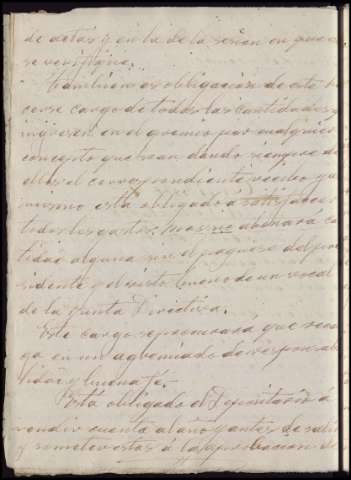 de actas y en la de la sesion en que
se verifique.
Tambien es obligacion de este ha
cerse cargo de todas las cantidades
ingresen en el gremio por cualquier
concepto que sean dando siempre de
ellas el correspondiente recibo
mismo está obligado a satisfacer
todos los gastos, mas no abonará can
tidad alguna sin el páguese del pre
sidente y el visto bueno de un vocal
de la Junta Directiva.
Este cargo se procurará que recai
ga en un agremiado de responsabi
lidad y buena fé.
Está obligado el Depositario á
rendir cuenta al año y antes de salir
y someter estas á la aprobacion de